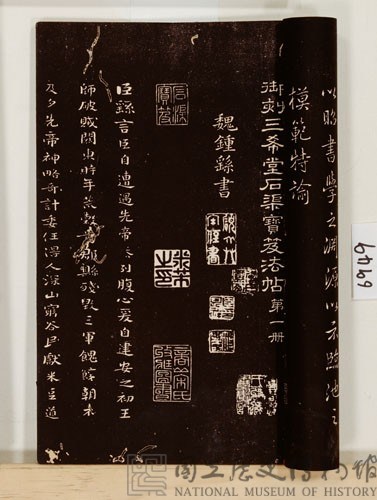 以昭書學之淵源以示臨池之
模範特諭
御刻三希堂石渠寶笈法帖第一冊
魏鍾繇書
臣繇言臣自遭遇先帝忝列腹心爰自建安之初王
師破賊關東時年荒穀貴郡縣殘毀三軍餽饟朝不
及夕先帝神略奇計委任得人深山窮谷民獻米豆道
6949
國立歷史博物館
NATIONAL MUSEUM OF HISTORY